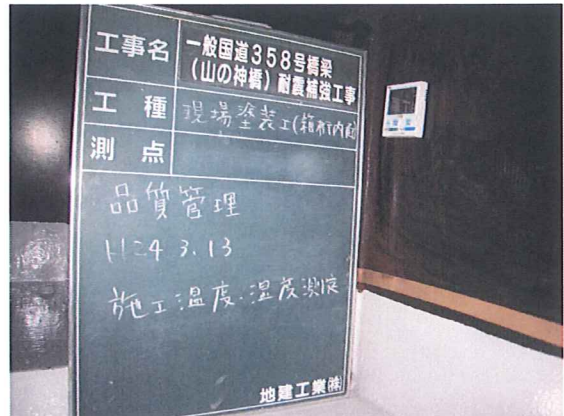 工事名
一般国道358号橋梁
(山の神橋)耐震補強工事
工種
現場塗装工(箱桁内面)
測点
品質管理
H24 3.13
施工温度・湿度測定
地建工業㈱